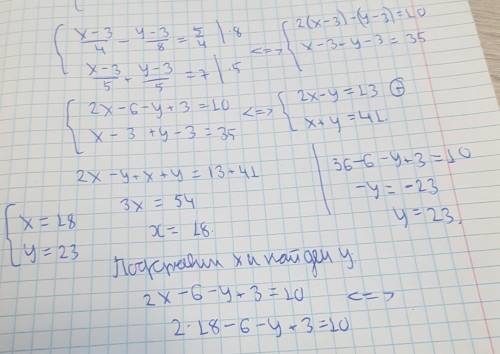 { (x-3)/4 - (y-3)/8 = 5/4 | ·8 <=> { 2(x-3)-(y-3)=10
(x-3)/5 + (y-3)/5 = 7 | ·5   x-3+y-3=35
{ 2x-6-y+3=10 <=> { 2x-y=13 ⊕
x-3+y-3=35   x+y=41
2x-y+x+y=13+41
3x=54
x=18.
{ x=18
y=23
36-6-y+3=10
-y=-23
y=23.
Подставим x и найдем y
2x-6-y+3=10 <=>
2·18-6-y+3=10